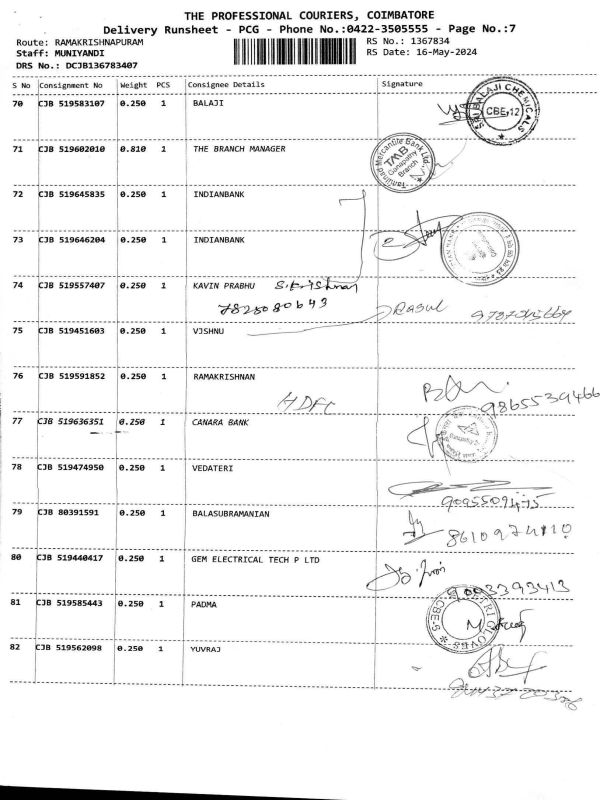 THE PROFESSIONAL COURIERS, COIMBATORE
Delivery Runsheet - PCG - Phone No.:0422-3505555 - Page No.:7
Route: RAMAKRISHNAPURAM RS No.: 1367834
Staff: MUNIYANDI RS Date: 16-May-2024
DRS No.: DCJB136783407
S No Consignment No Weight PCS Consignee Details Signature
70 CJB 519583107 0.250 1 BALAJI
SRI BALAJI CHEMICALS CBE-12
71 CJB 519602010 0.810 1 THE BRANCH MANAGER
Tamilnad Mercantile Bank Ltd. TMB Ganapathy Branch
72 CJB 519645835 0.250 1 INDIANBANK
73 CJB 519646204 0.250 1 INDIANBANK
74 CJB 519557407 0.250 1 KAVIN PRABHU S.Krishnan
7825080643
Rasul
75 CJB 519451603 0.250 1 VJSHNU
76 CJB 519591852 0.250 1 RAMAKRISHNAN
HDFC
9865539466
77 CJB 519636351 0.250 1 CANARA BANK
78 CJB 519474950 0.250 1 VEDATERI
79 CJB 80391591 0.250 1 BALASUBRAMANIAN
80 CJB 519440417 0.250 1 GEM ELECTRICAL TECH P LTD
9003393413
81 CJB 519585443 0.250 1 PADMA
82 CJB 519562098 0.250 1 YUVRAJ